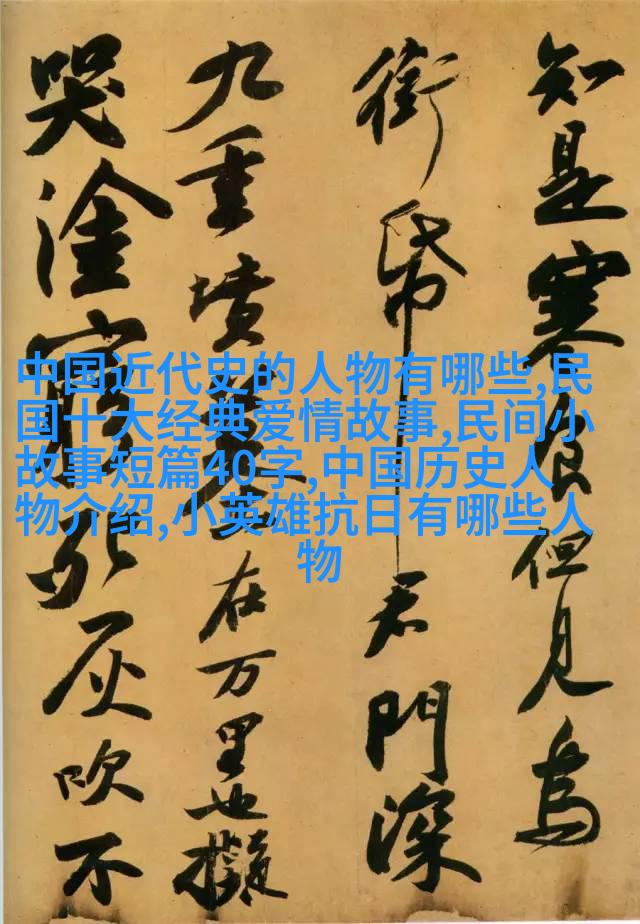 知是寒食但見烏
銜帋君門深
九重墳墓在万里也擬
哭塗窮死灰吹不
中国近代史的人物有哪些,民
国十大经典爱情故事,民间小
故事短篇40字,中国历史人
物介绍,小英雄抗日有哪些人
物